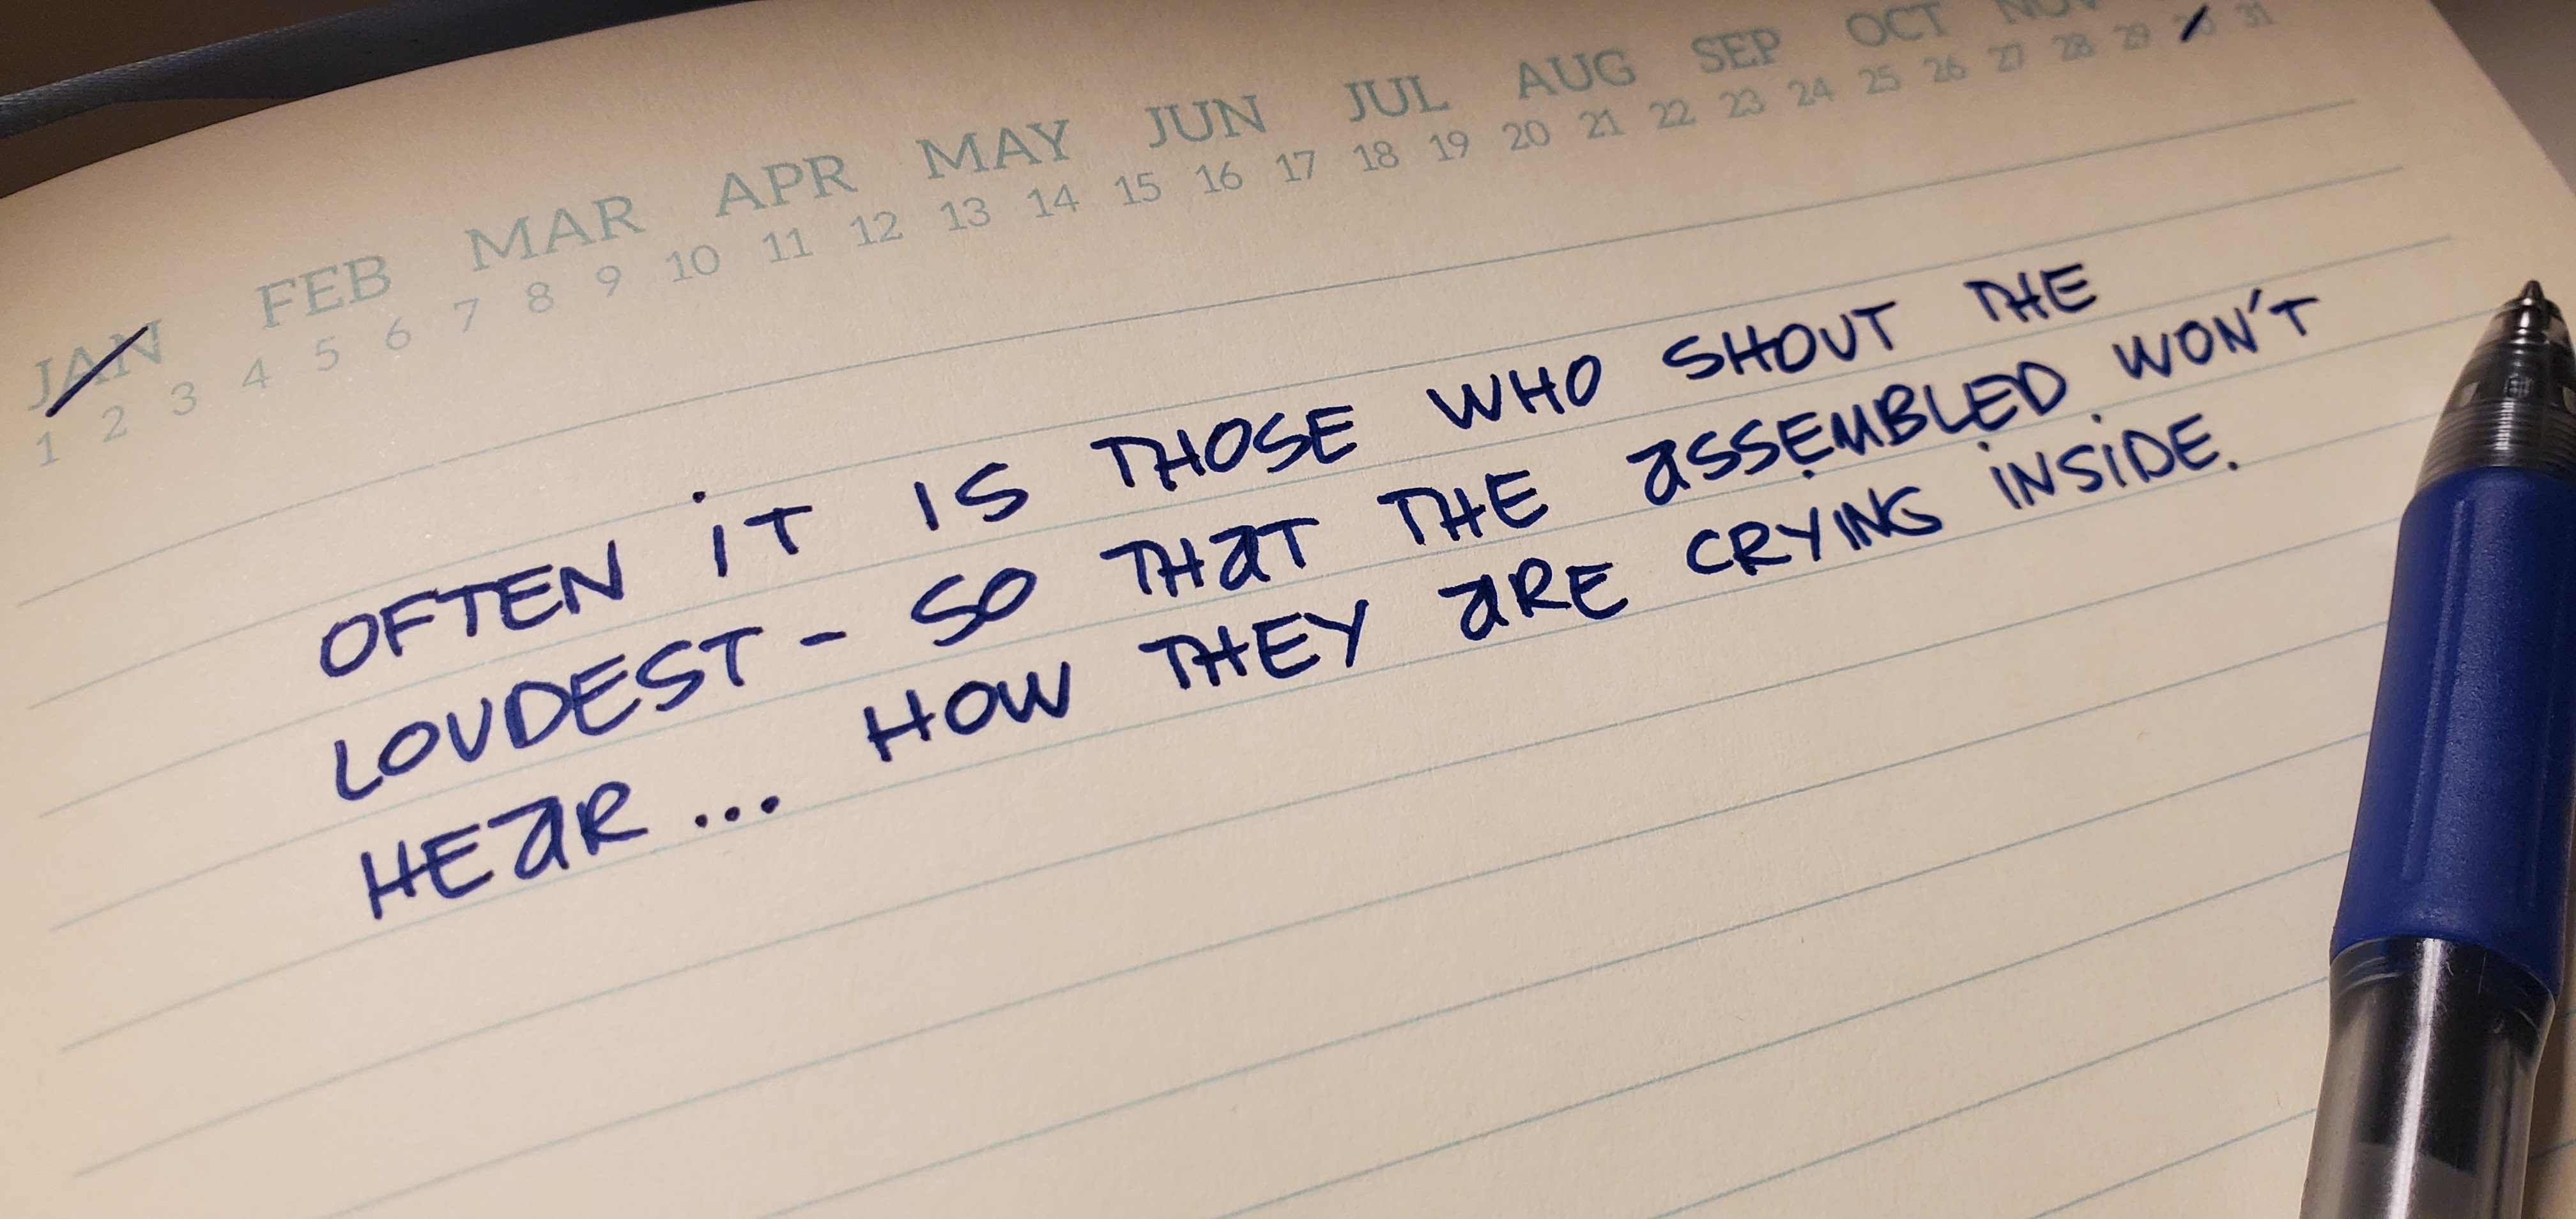 JAN FEB MAR APR MAY JUN JUL AUG SEP OCT NOV
1 2 3 4 5 6 7 8 9 10 11 12 13 14 15 16 17 18 19 20 21 22 23 24 25 26 27 28 29 30 31
OFTEN iT IS THOSE WHO SHOUT THE
LOUDEST - SO THaT THE aSSEMBLED WON'T
HEaR ... HOW THEY aRE CRYING iNSiDE.